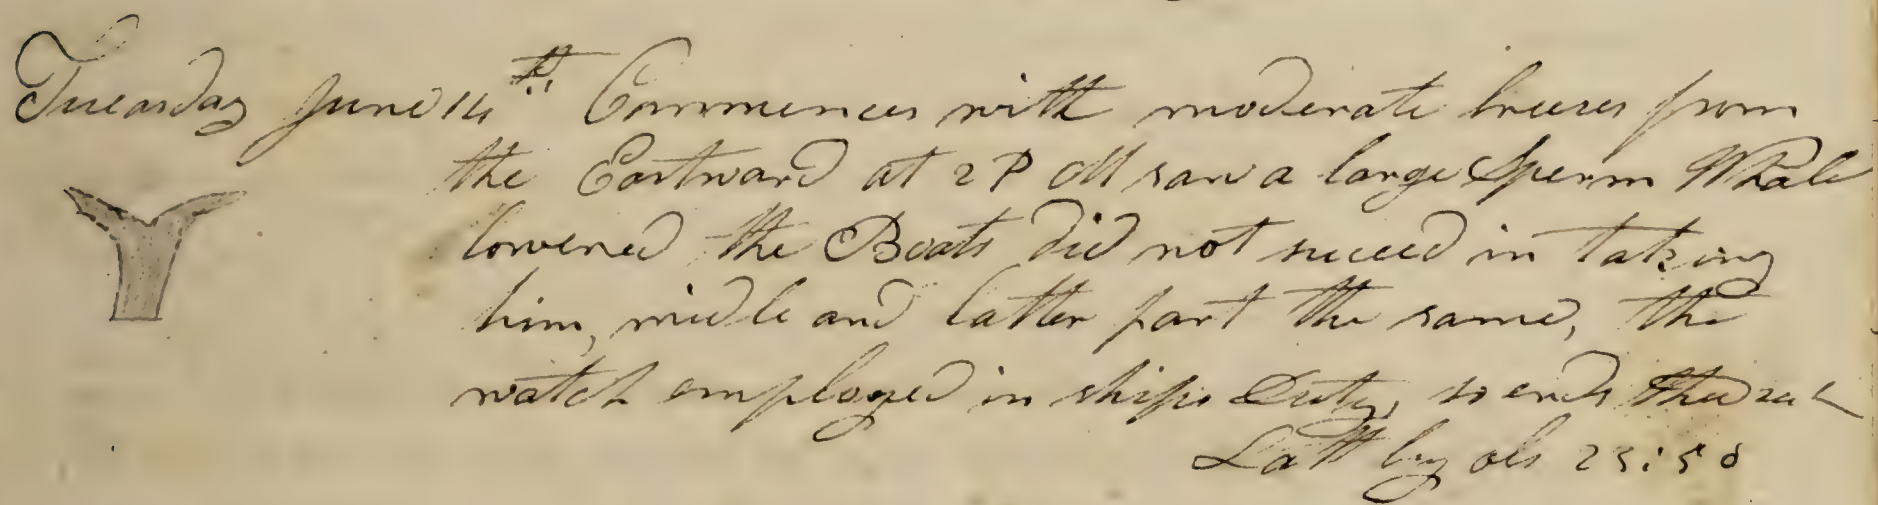 Tuesday June 14th Commences with moderate breeses from
the Eastward at 2 P M saw a large Sperm Whale
lowered the Boats did not suceed in taking
him, midle and latter part the same, the
watch employed in ships Duty, so ends these 24 h
Latt by obs 23:50